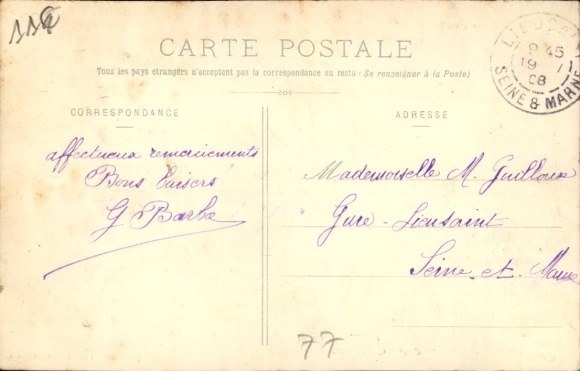 CARTE POSTALE
Tous les pays étrangers n'acceptent pas la correspondance au recto (Se renseigner à la Poste)
CORRESPONDANCE
ADRESSE
affectueux remerciements
Bons baisers
G Barbe
Mademoiselle M. Guilloux
Gare - Lieusaint
Seine-et-Marne
9 45
19
08
SEINE & MARNE
77